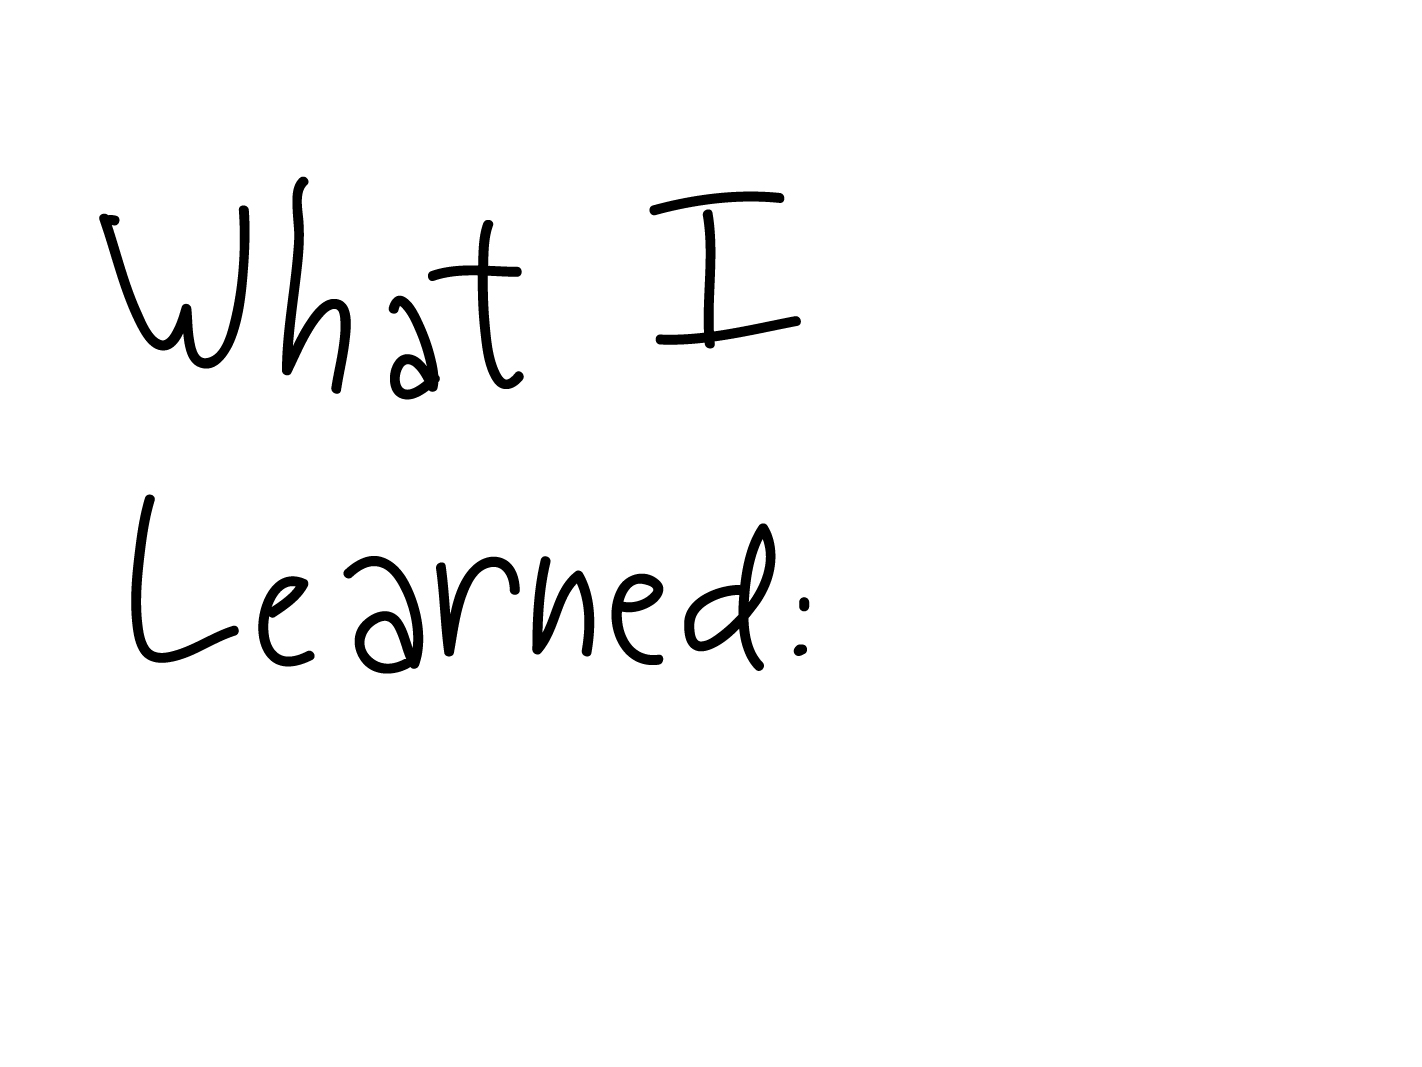 What I
Learned: